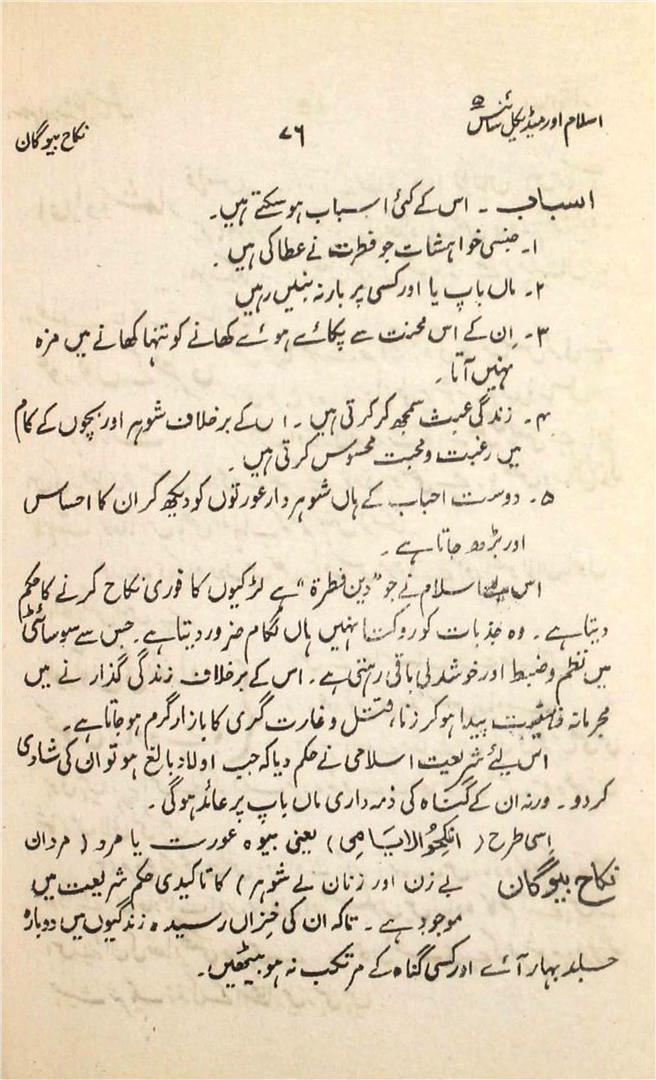 اسلام اور میڈیکل سائنس ۷۶ نکاح بیوگان
اسباب ۔ اس کے کئی اسباب ہو سکتے ہیں۔
۱۔ جنسی خواہشات جو فطرت نے عطا کی ہیں ۔
۲۔ ماں باپ یا اور کسی پر بار نہ بنیں رہیں
۳۔ اِن کے اس محنت سے پکائے ہوئے کھانے کو تنہا کھانے میں مزہ
نہیں آتا ۔
۴۔ زندگی عبث سمجھ کر کرتی ہیں ۔ اس کے برخلاف شوہر اور بچوں کے کام
میں رغبت و محبت محسوس کرتی ہیں ۔
۵۔ دوست احباب کے ہاں شوہر دار عورتوں کو دیکھ کر ان کا احساس
اور بڑھ جاتا ہے ۔
اس لئے اسلام نے جو "دین فطرة" ہے لڑکیوں کا فوری نکاح کرنے کا حکم
دیتا ہے ۔ وہ جذبات کو روکتا نہیں ہاں لگام ضرور دیتا ہے۔ جس سے سوسائٹی
میں نظم و ضبط اور خوشدلی باقی رہتی ہے ۔ اس کے برخلاف زندگی گذارنے میں
مجرمانہ ذہنیت پیدا ہو کر زنا، قتل و غارت گری کا بازار گرم ہو جاتا ہے ۔
اس لئے شریعت اسلامی نے حکم دیا کہ جب اولاد بالغ ہو تو ان کی شادی
کر دو ۔ ورنہ ان کے گناہ کی ذمہ داری ماں باپ پر عائد ہوگی ۔
اِسی طرح ( انکِحُوالایَامیٰ ) یعنی بیوہ عورت یا مرد ( مردان
نکاح بیوگان بے زن اور زنان بے شوہر ) کا تاکیدی حکم شریعت میں
موجود ہے ۔ تاکہ ان کی خزاں رسیدہ زندگیوں میں دوبارہ
جلد بہار آئے اور کسی گناہ کے مرتکب نہ ہو بیٹھیں ۔